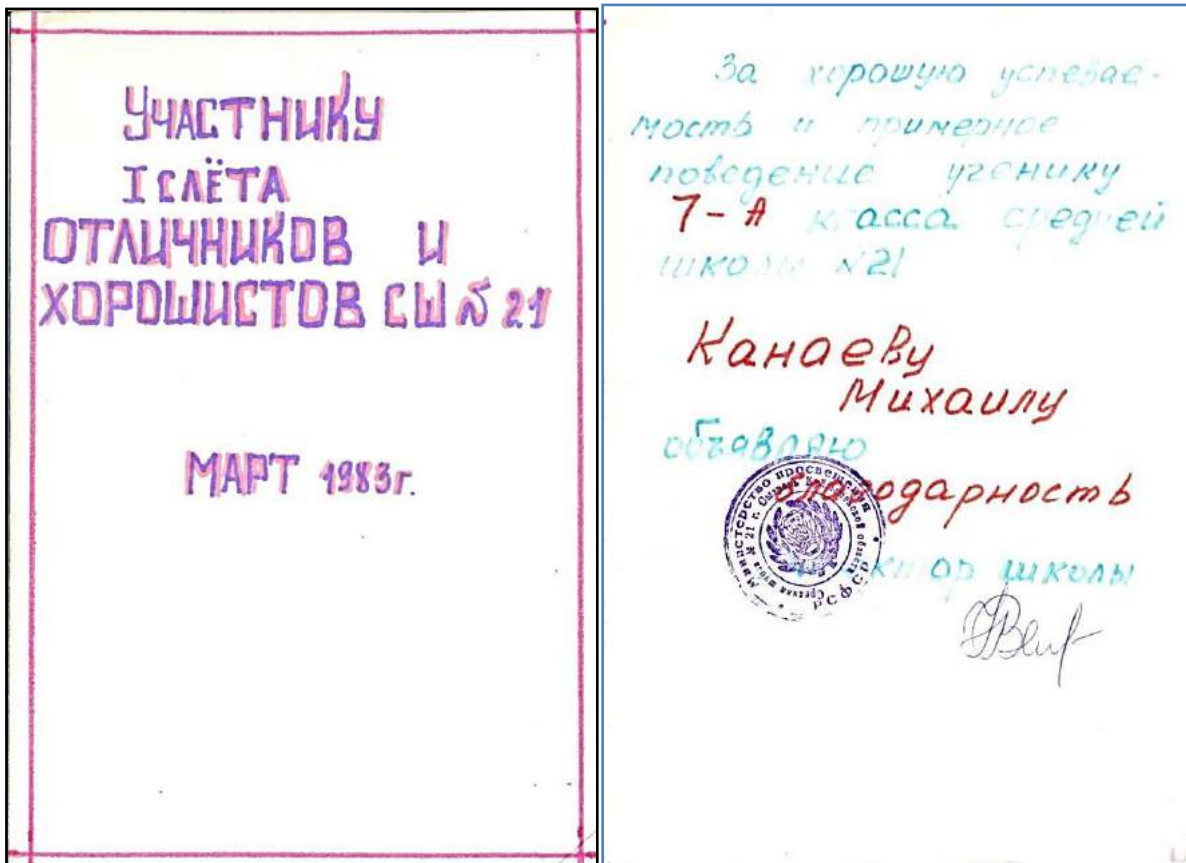 УЧАСТНИКУ
I СЛЁТА
ОТЛИЧНИКОВ И
ХОРОШИСТОВ СШ № 21
МАРТ 1983г.
За хорошую успевае-
мость и примерное
поведение ученику
7-А класса средней
школы №21
Канаеву
Михаилу
объявляю
благодарность
директор школы
Министерство просвещения
РСФСР
Средняя школа № 21 г. Сызрань Куйбышевской области